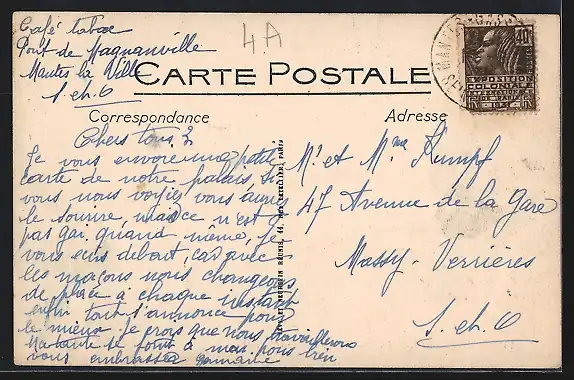 Café tabac
Pont de Magnanville
Mantes la Ville
S. et. O
4A
CARTE POSTALE
Correspondance
Adresse
MANTES-GASSI
SEINE
40c
EXPOSITION
COLONIALE
INTERNATIONALE
PARIS 1931
Chers tous 2
Je vous envoie une petite
carte de notre palais, si
vous nous voyiez vous auriez
le sourire, mais ce n'est
pas gai quand même, je
vous ecris debout, car avec
les maçons nous changeons
de place à chaque instant
enfin tout s'annonce pour
le mieux Je crois que nous travaillerons
Ma tante se joint à moi pour bien
vous embrasser Germaine
PARIS
Mr et Mme Kumpf
47 Avenue de la Gare
Massy-Verrières
S. et. O